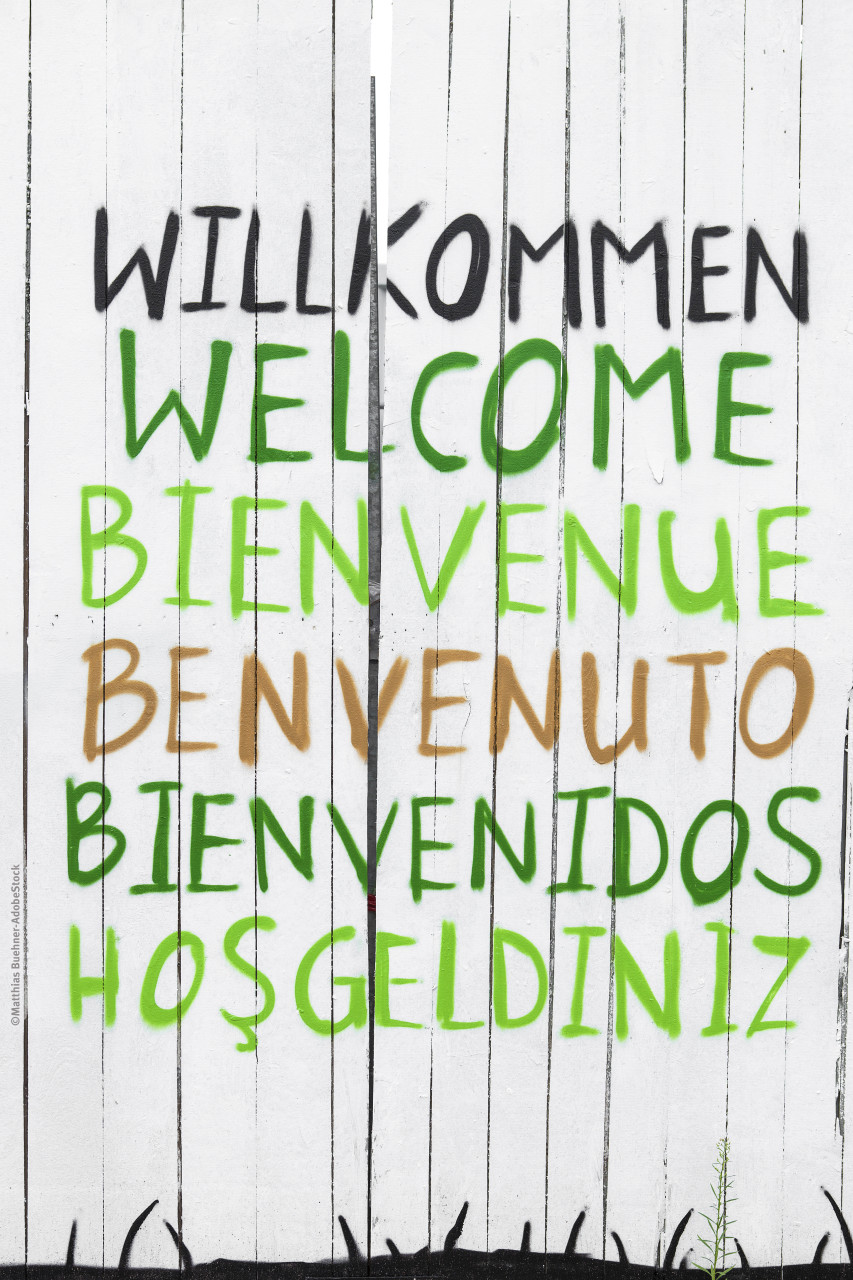 WILLKOMMEN
WELCOME
BIENVENUE
BENVENUTO
BIENVENIDOS
HOŞGELDINIZ
©Matthias Buehner-AdobeStock